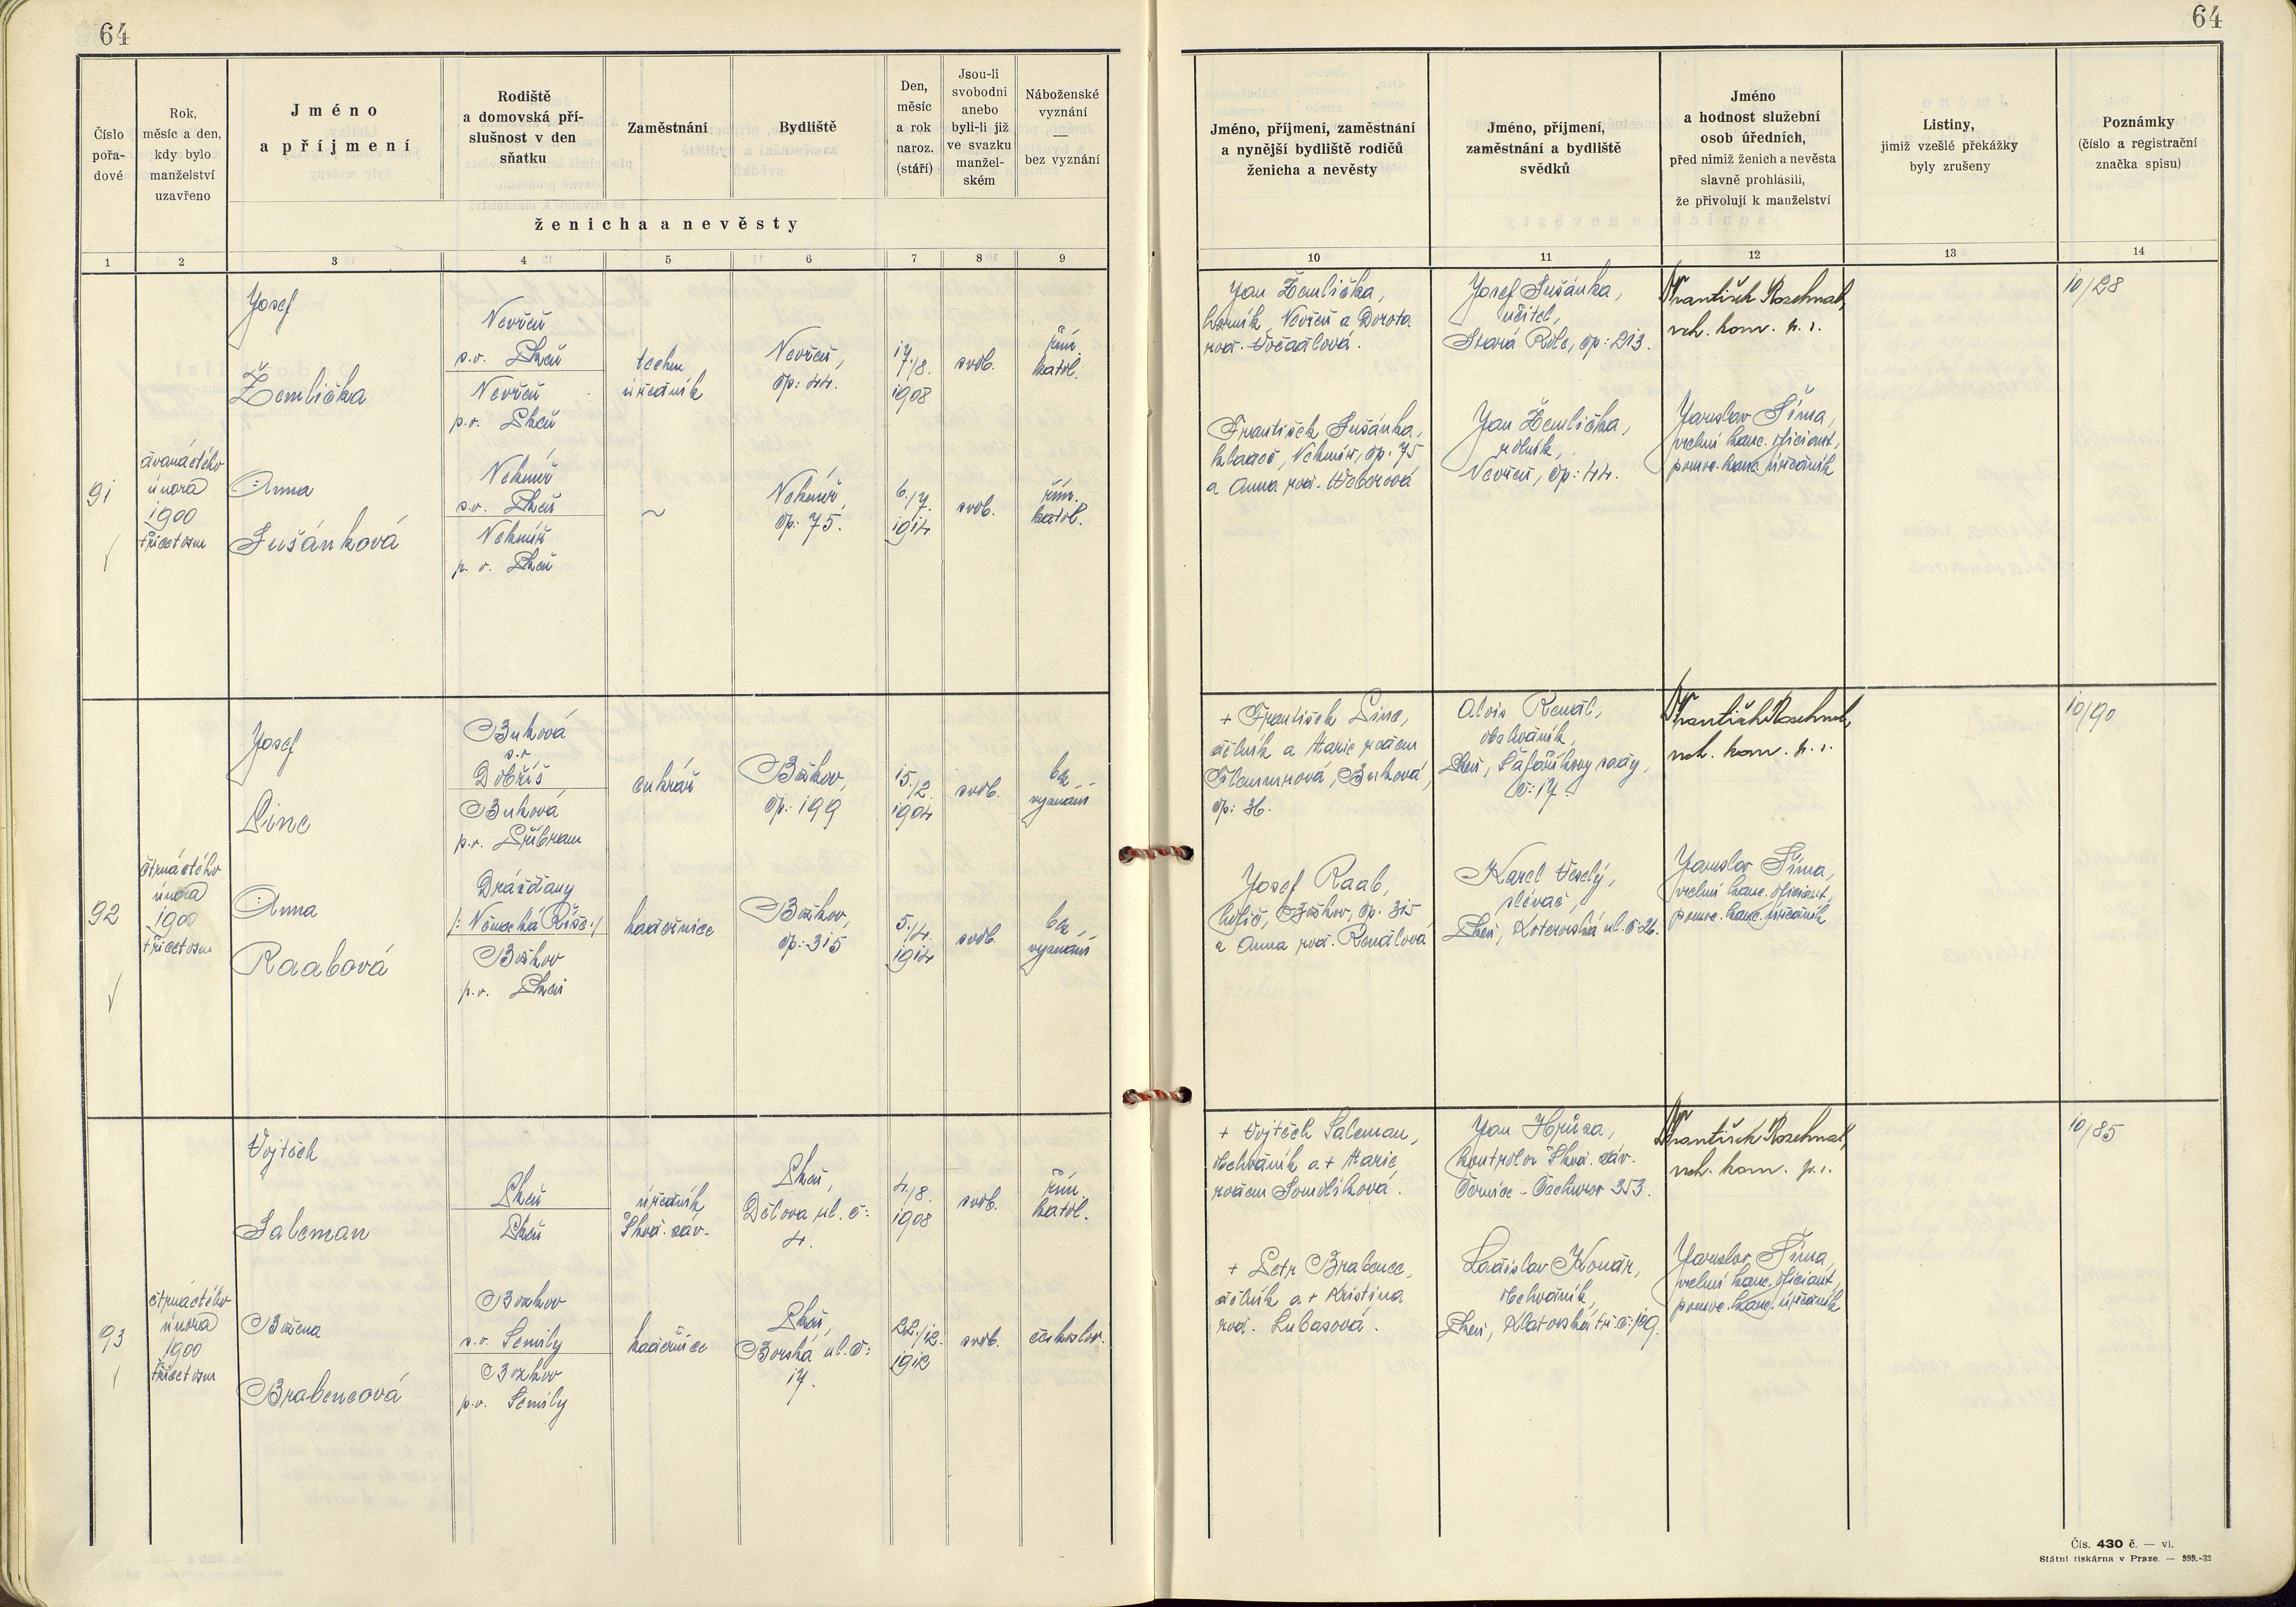 64
64
Číslo
pořa-
dové
Rok,
měsíc a den,
kdy bylo
manželství
uzavřeno
Jméno
a příjmení
Rodiště
a domovská pří-
slušnost v den
sňatku
Zaměstnání
Bydliště
Den,
měsíc
a rok
naroz.
(stáří)
Jsou-li
svobodni
anebo
byli-li již
ve svazku
manžel-
ském
Náboženské
vyznání
—
bez vyznání
ženicha a nevěsty
Jméno, příjmení, zaměstnání
a nynější bydliště rodičů
ženicha a nevěsty
Jméno, příjmení,
zaměstnání a bydliště
svědků
Jméno
a hodnost služební
osob úředních,
před nimiž ženich a nevěsta
slavně prohlásili,
že přivolují k manželství
Listiny,
jimiž vzešlé překážky
byly zrušeny
Poznámky
(číslo a registrační
značka spisu)
1 2 3 4 5 6 7 8 9
10 11 12 13 14
91
dvanáctého
února
1900
třicet osm
Josef
Žemlička
Nevřeň
s.o. Plzeň
Nevřeň
p.o. Plzeň
techn
úředník
Nevřeň,
čp: 44.
17./8.
1908
svob.
řím.
katol.
Anna
Sušánková
Nekmíř
s.o. Plzeň
Nekmíř
p. o. Plzeň
~
Nekmíř,
čp: 75.
6./7.
1914
svob.
řím.
katol.
Jan Žemlička,
horník, Nevřeň a Dorota
roz. Vočadlová.
František Sušánka,
, Nekmíř, čp: 75
a Anna roz. Weberová
Josef Sušánka,
učitel,
Stará Role, čp: 213.
Jan Žemlička,
rolník,
Nevřeň, čp: 44.
František Rozehnal,
vrch. kom. p. s.
Jaroslav Šíma,
vrchní kanc. oficiant,
pomoc. kanc. úředník
10/28
92
čtrnáctého
února
1900
třicet osm
Josef
Linc
Buková
s.o.
Dobříš
Buková
p.o. Příbram
cukrář
Božkov,
čp: 199
15./2.
1904
svob.
bez
vyznání
Anna
Raabová
Drážďany
/: Německá Říše :/
Božkov
p.o. Plzeň
kadeřnice
Božkov,
čp: 315
5./4.
1914
svob.
bez
vyznání
+ František Linc,
dělník a Marie rozen
, Buková,
čp: 36.
Josef Raab,
holič, Božkov, čp. 315
a Anna roz. Renčlová
Alois Renčl,
obchodník,
Plzeň, Šafaříkovy sady,
č: 17.
Karel Veselý,
slévač,
Plzeň, Koterovská ul. č: 26.
František Rozehnal,
vrch. kom. p. s.
Jaroslav Šíma,
vrchní kanc. oficiant,
pomoc. kanc. úředník
10/90
93
čtrnáctého
února
1900
třicet osm
Vojtěch
Saleman
Plzeň
Plzeň
úředník
Škod. záv.
Plzeň,
Dělova ul. č:
4.
4./8.
1908
svob.
řím.
katol.
Božena
Brabencová
Bozkov
s.o. Semily
Bozkov
p.o. Semily
kadeřnice
Plzeň,
Borská ul. č:
17.
22./12.
1912
svob.
českoslov.
+ Vojtěch Saleman,
obchodník a + Marie
rozen
+ Petr Brabenec,
dělník a + Kristina
roz. Lukasová.
Jan Hrůza,
kontrolor Škod. záv.
Černice - Čechurov 353.
Ladislav Konár,
obchodník,
Plzeň, Klatovská tř. č: 109.
František Rozehnal,
vrch. kom. p. s.
Jaroslav Šíma,
vrchní kanc. oficiant,
pomoc. kanc. úředník
10/85
Čís. 430 č. — vi.
Státní tiskárna v Praze. — 999.-32